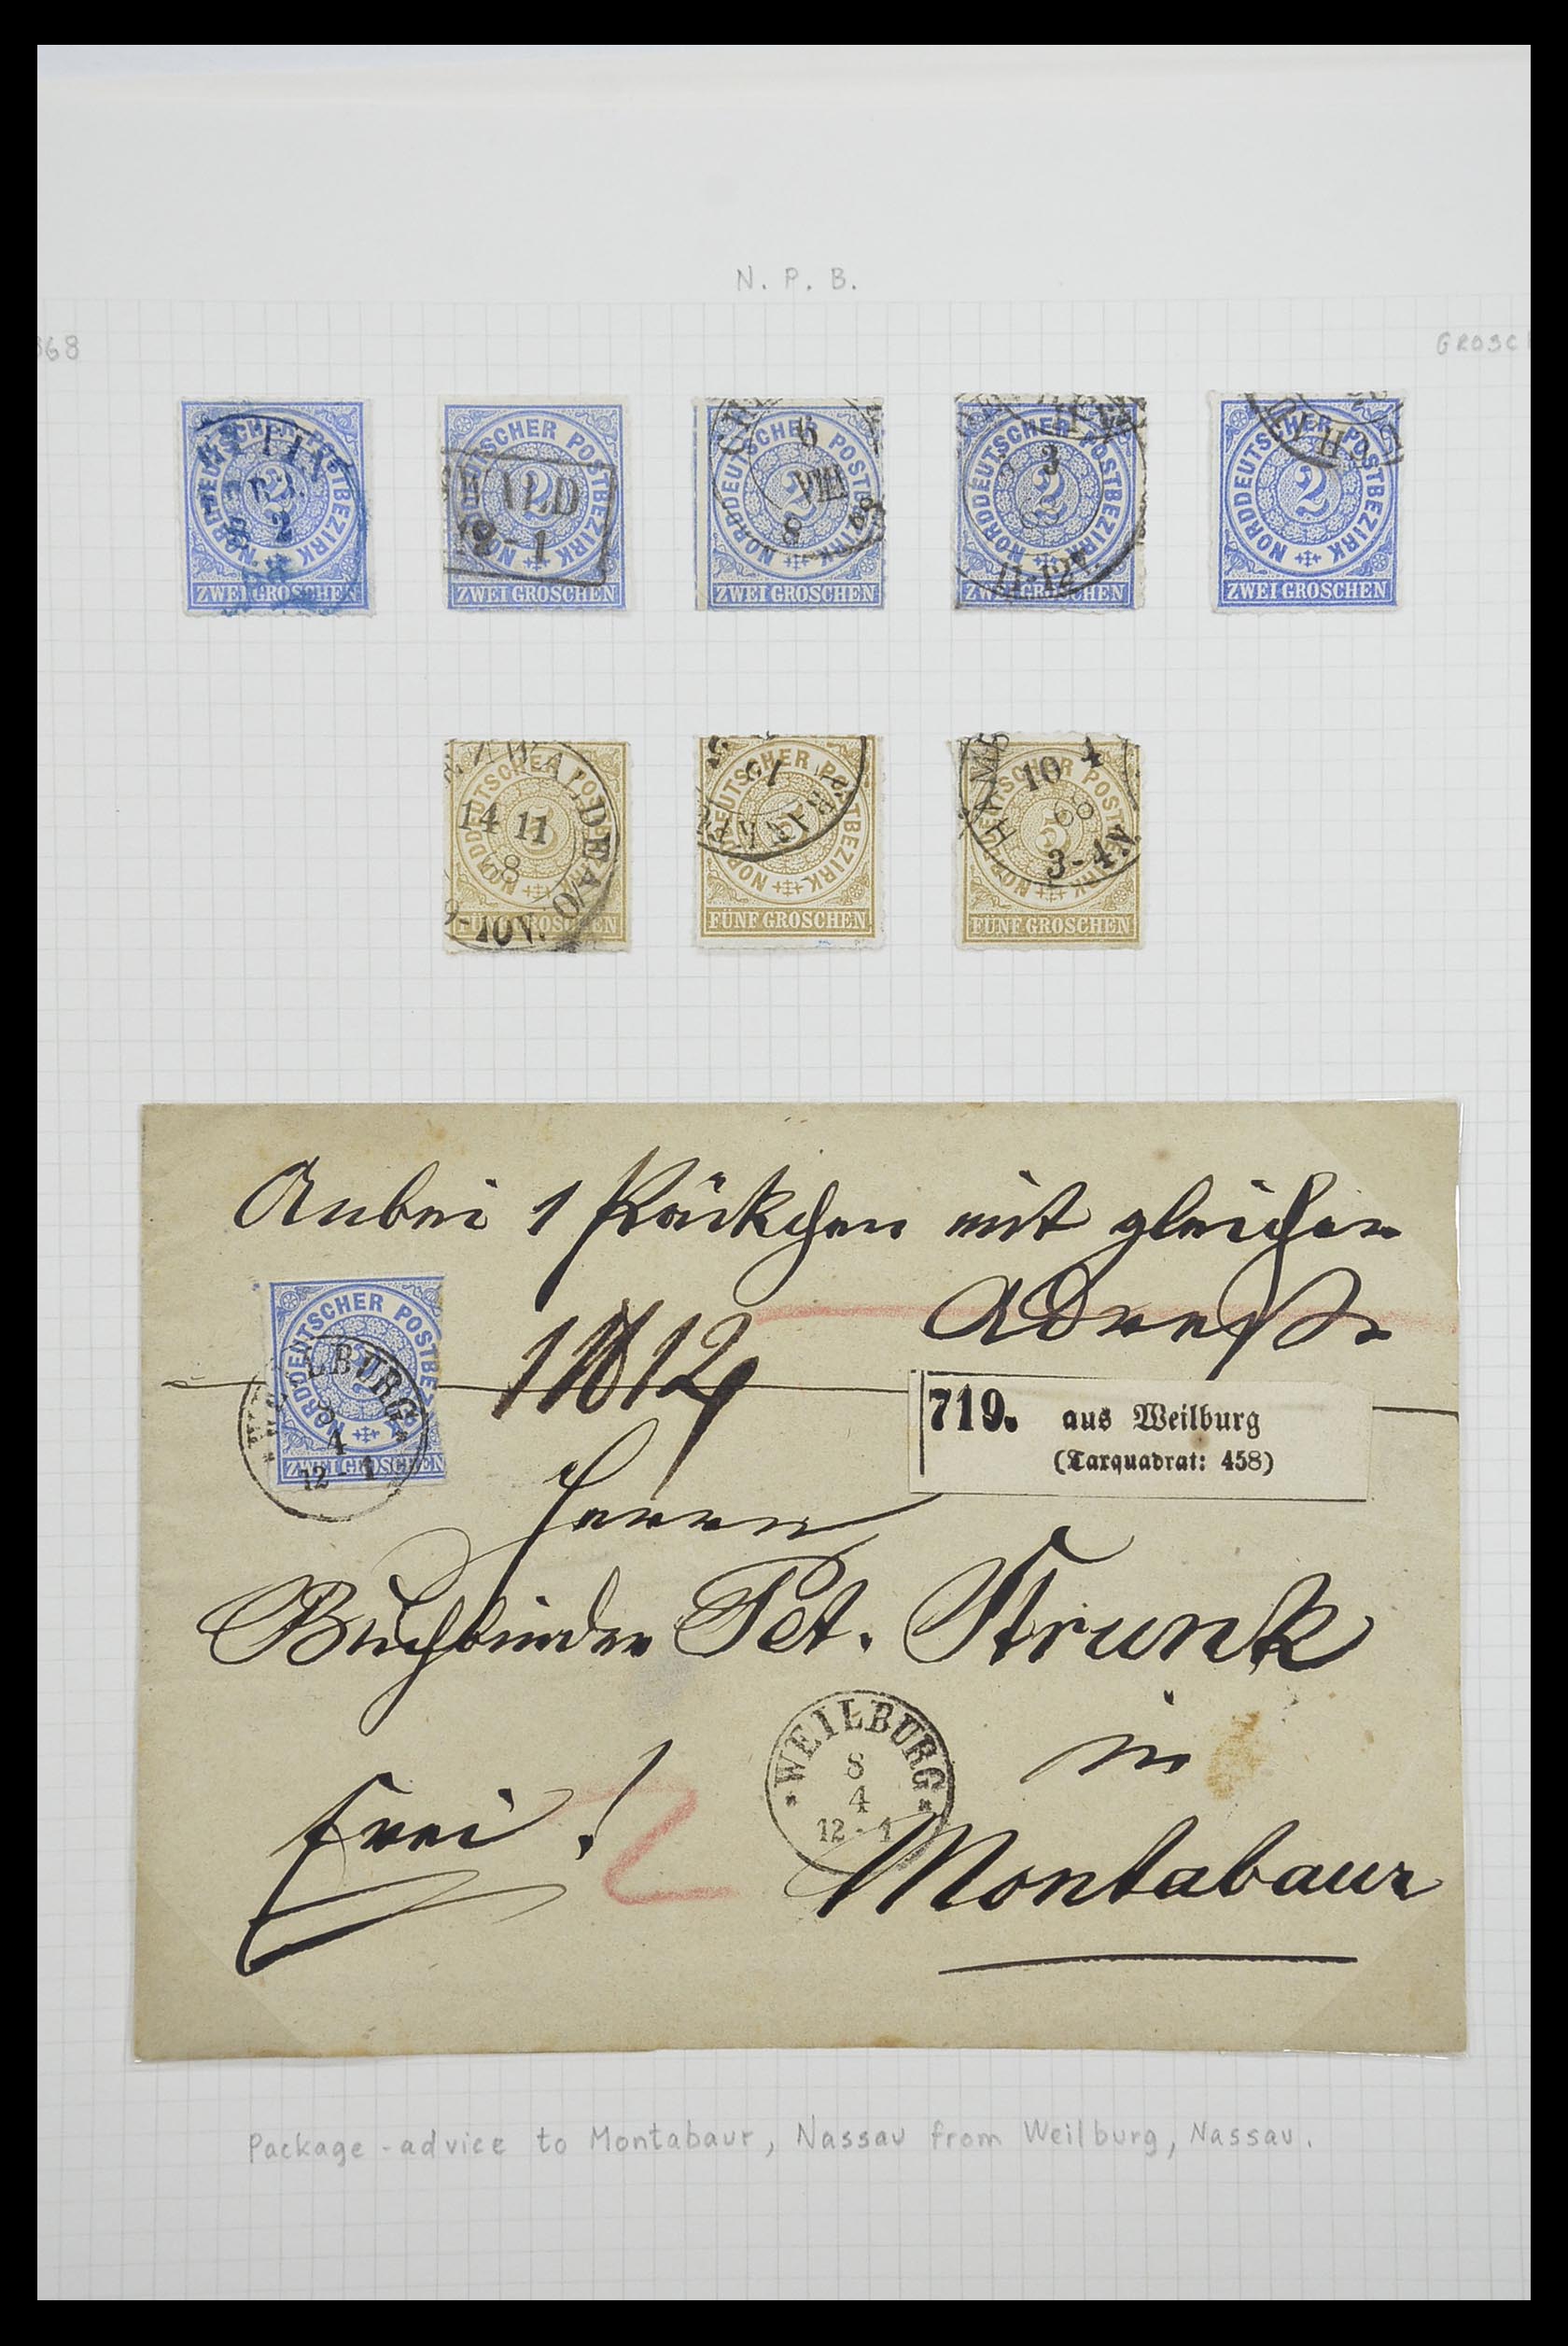 N. P. B.
68
GROSC
NORDDEUTSCHER POSTBEZIRK
2
ZWEI GROSCHEN
NORDDEUTSCHER POSTBEZIRK
2
ZWEI GROSCHEN
WALD
12-1
NORDDEUTSCHER POSTBEZIRK
2
ZWEI GROSCHEN
6
VIII
8
68
NORDDEUTSCHER POSTBEZIRK
2
ZWEI GROSCHEN
3
11-12V.
NORDDEUTSCHER POSTBEZIRK
2
ZWEI GROSCHEN
NORDDEUTSCHER POSTBEZIRK
5
FÜNF GROSCHEN
14 11
8
9-10V.
NORDDEUTSCHER POSTBEZIRK
5
FÜNF GROSCHEN
NORDDEUTSCHER POSTBEZIRK
5
FÜNF GROSCHEN
10 4
68
3-4N.
Anbei 1 Päckchen mit gleicher
Adresse
NORDDEUTSCHER POSTBEZ
2
ZWEI GROSCHEN
WEILBURG
8
4
12-1
719. aus Weilburg
(Taxquadrat: 458)
Herrn
Buchbinder Pet. Strunk
in
WEILBURG
8
4
12-1
Frei!
2
Montabaur
Package-advice to Montabaur, Nassau from Weilburg, Nassau.